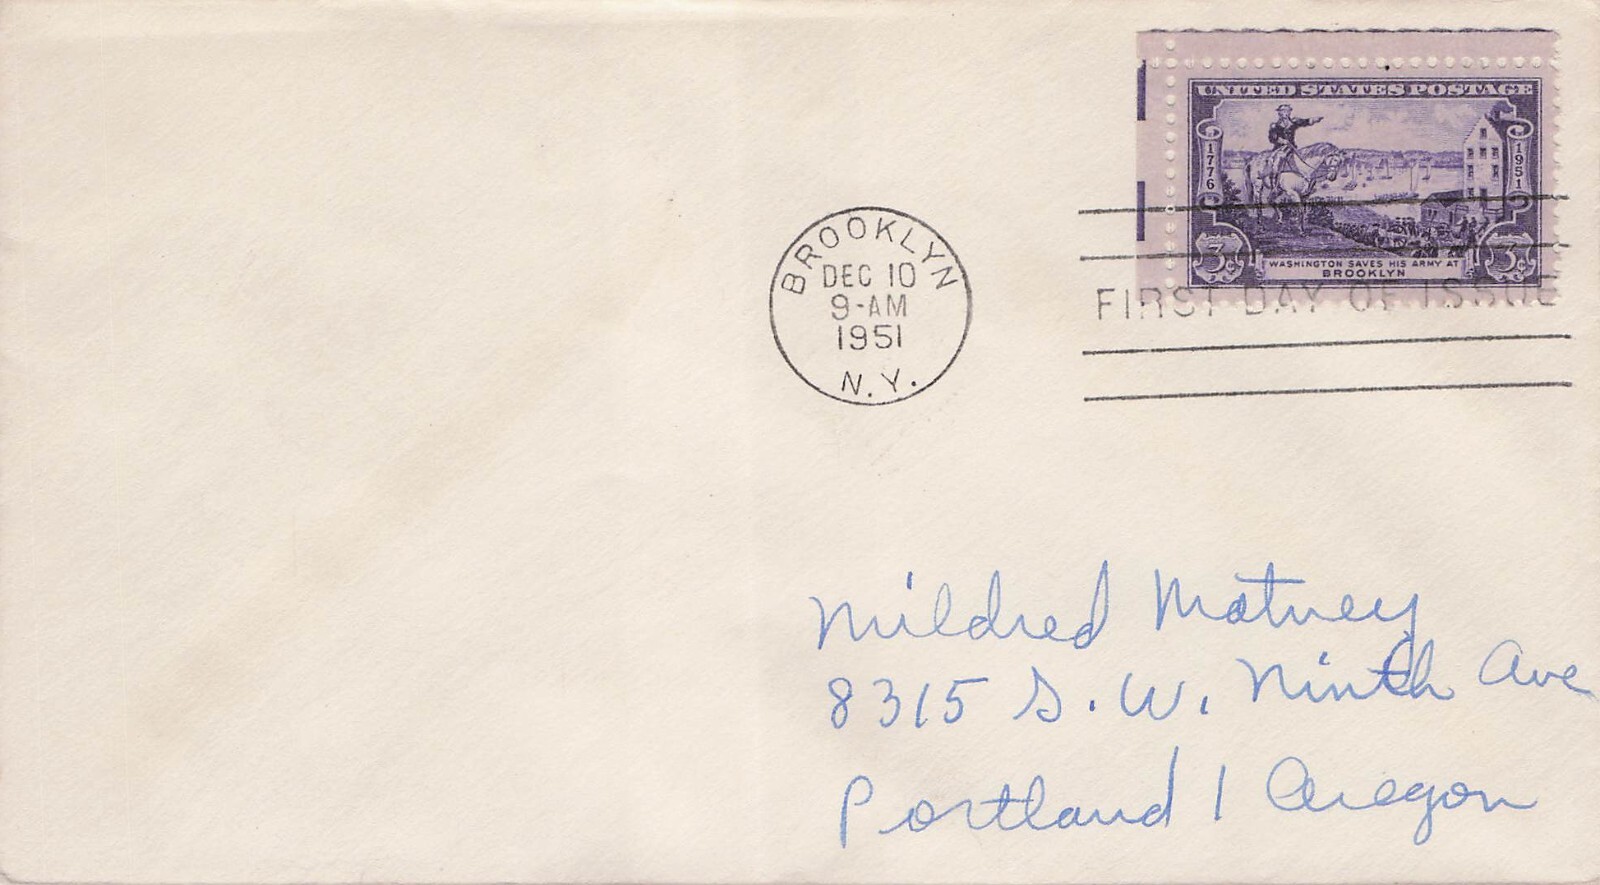 UNITED STATES POSTAGE
1776
1951
3¢
3¢
WASHINGTON SAVES HIS ARMY AT
BROOKLYN
BROOKLYN
DEC 10
9-AM
1951
N.Y.
FIRST DAY OF ISSUE
Mildred Matney
8315 S.W. Ninth Ave
Portland 1 Oregon